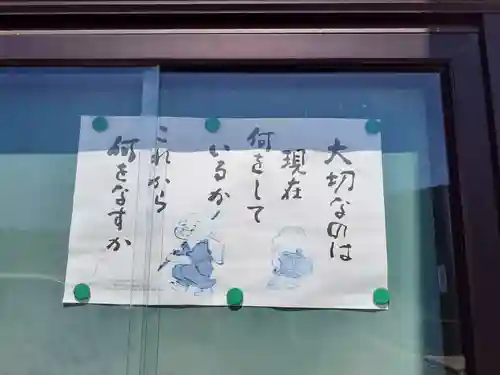 大切なのは
現在
何をして
いるか！
これから
何をなすか